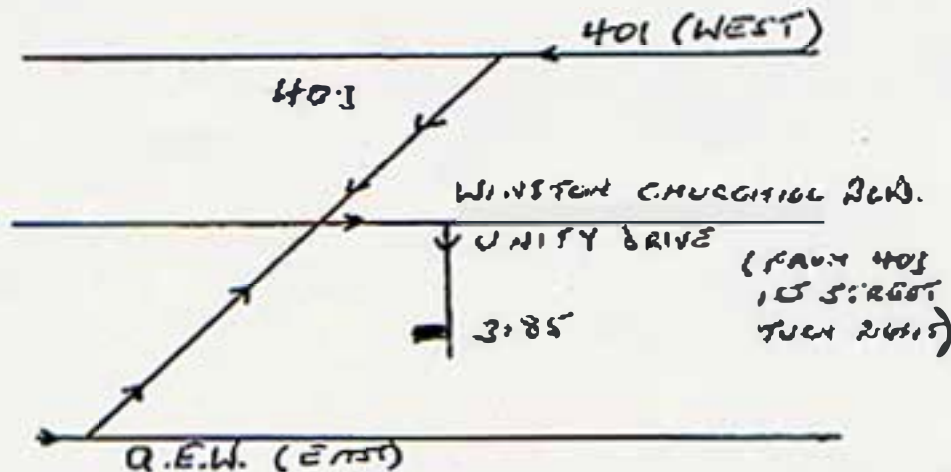 401 (WEST)
403
WINSTON CHURCHILL BLVD.
UNITY DRIVE
(FROM 403
1ST STREET
TURN RIGHT)
3185
Q.E.W. (EAST)